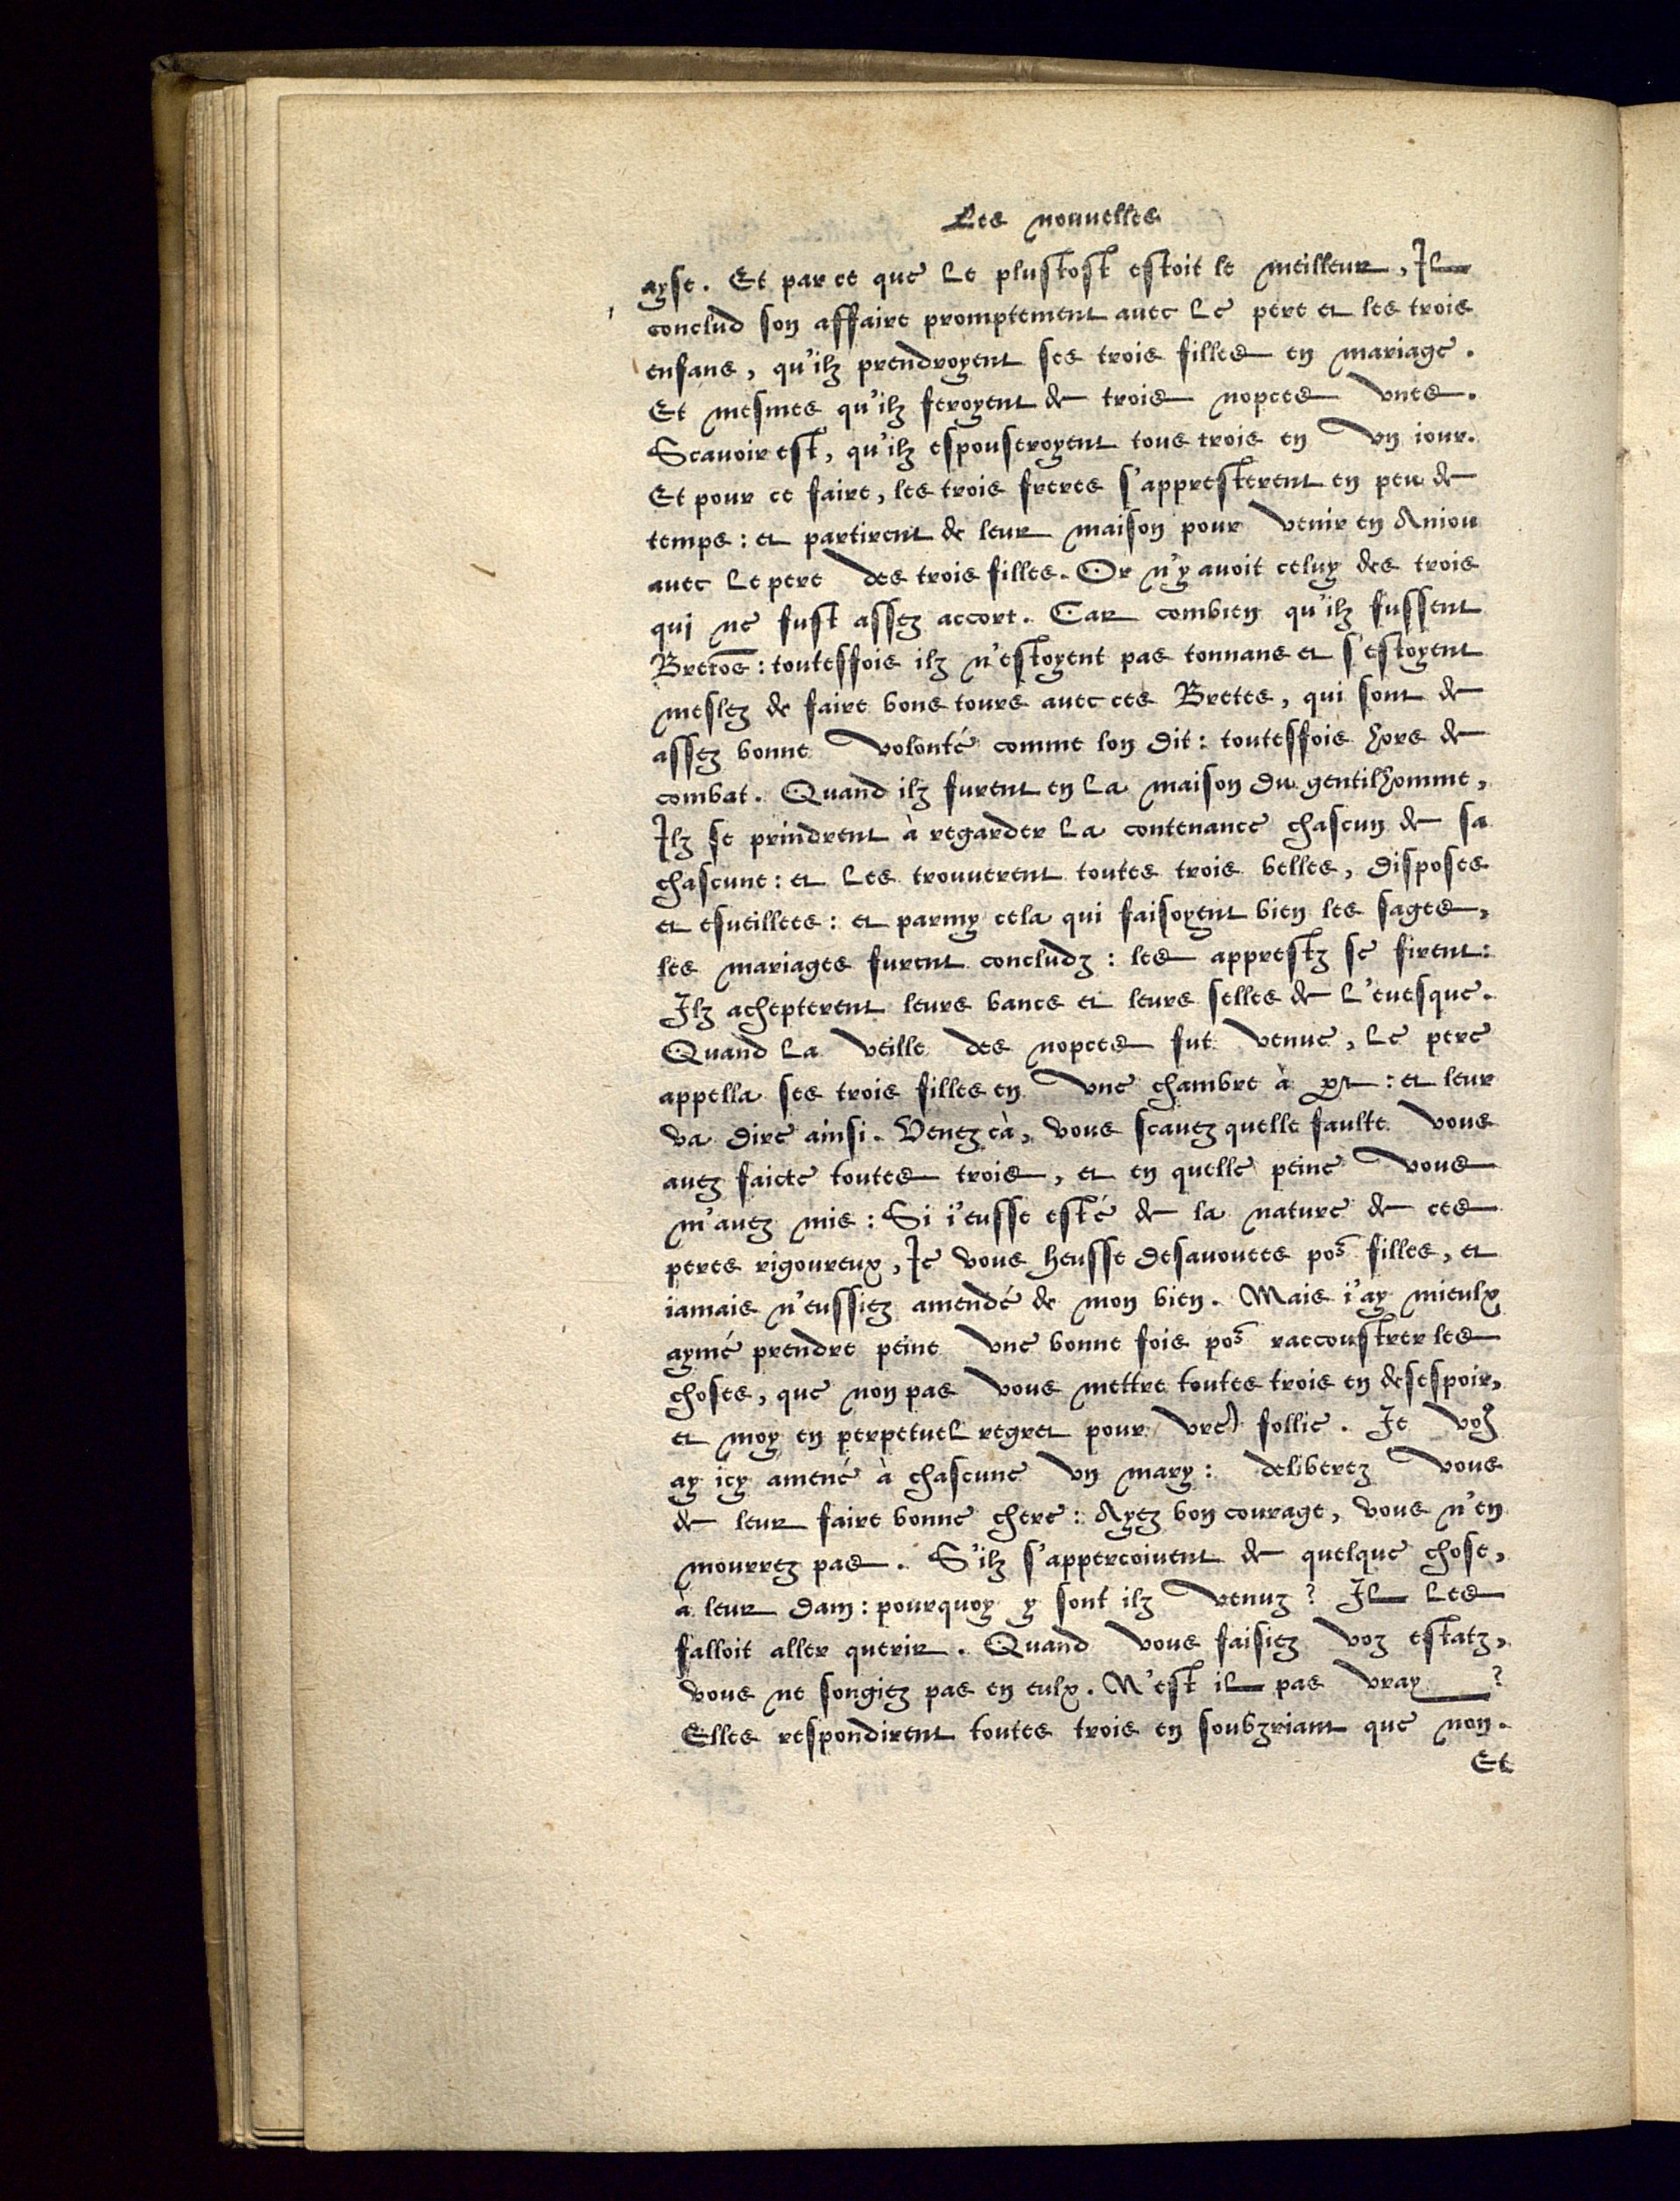 Les nouuelles
ayse. Et par ce que le plustost estoit le meilleur, Il
conclud son affaire promptement auec le pere et les trois
enfans, qu'ilz prendroyent ses trois filles en mariage.
Et mesmes qu'ilz feroyent de trois nopces vnes.
Scauoir est, qu'ilz espouseroyent tous trois en vn iour.
Et pour ce faire, les trois freres s'appresterent en peu de
temps: et partirent de leur maison pour venir en Aniou
auec le pere des trois filles. Or n'y auoit celuy des trois
qui ne fust assez accort. Car combien qu'ilz fussent
Bretõs: toutesfois ilz n'estoyent pas tonnans et s'estoyent
meslez de faire bons tours auec ces Bretes, qui sont de
assez bonne volonté comme lon dit: toutesfois hors de
combat. Quand ilz furent en la maison du gentilhomme,
Ilz se prindrent à regarder la contenance chascun de sa
chascune: et les trouuerent toutes trois belles, disposes
et esueillees: et parmy cela qui faisoyent bien les sages,
les mariages furent concludz: les apprestz se firent:
Ilz achepterent leurs bancs et leurs selles de l'euesque.
Quand la veille des nopces fut venue, le pere
appella ses trois filles en vne chambre à ꝑt: et leur
va dire ainsi. Venez cà, vous scauez quelle faulte vous
auez faicte toutes trois, et en quelle peine vous
m'auez mis: Si i'eusse esté de la nature de ces
peres rigoureux, Ie vous heusse desauouees poᷣ filles, et
iamais n'eussiez amendé de mon bien. Mais i'ay mieulx
aymé prendre peine vne bonne fois poᷣ raccoustrer les
choses, que non pas vous mettre toutes trois en desespoir,
et moy en perpetuel regret pour vr̃e follie. Ie voꝰ
ay icy amené à chascune vn mary: deliberez vous
de leur faire bonne chere: Ayez bon courage, vous n'en
mourrez pas. S'ilz s'appercoiuent de quelque chose,
à leur dam: pourquoy y sont ilz venuz? Il les
falloit aller querir. Quand vous faisiez voz estatz,
vous ne songiez pas en eulx. N'est il pas vray?
Elles respondirent toutes trois en soubzriant que non.
Et